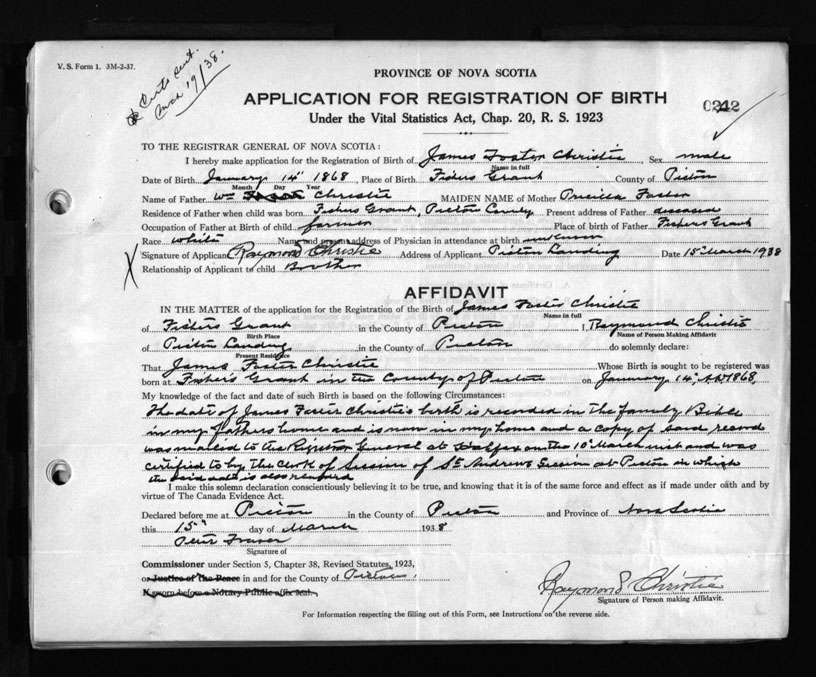 V. S. Form 1. 3M-2-37.
Certs sent.
March 19/38.
PROVINCE OF NOVA SCOTIA
APPLICATION FOR REGISTRATION OF BIRTH
Under the Vital Statistics Act, Chap. 20, R. S. 1923
TO THE REGISTRAR GENERAL OF NOVA SCOTIA:
I hereby make application for the Registration of Birth of James Foster Christie, Sex male
Name in full
Date of Birth January 14" 1868, Place of Birth Fishers Grant County of Pictou
Month Day Year
Name of Father Wm Christie MAIDEN NAME of Mother Precilla Foster
Residence of Father when child was born Fishers Grant, Pictou County Present address of Father deceased
Occupation of Father at Birth of child farmer Place of birth of Father Fishers Grant
Race white Name and present address of Physician in attendance at birth unknown
Signature of Applicant Raymond Christie Address of Applicant Pictou Landing Date 15" March 1938
Relationship of Applicant to child Brother
AFFIDAVIT
IN THE MATTER of the application for the Registration of the Birth of James Foster Christie
Name in full
of Fishers Grant in the County of Pictou I, Raymond Christie
Birth Place Name of Person Making Affidavit
of Pictou Landing in the County of Pictou do solemnly declare:
Present Residence
That James Foster Christie Whose Birth is sought to be registered was
born at Fishers Grant in the County of Pictou on January 14", AD 1868,
My knowledge of the fact and date of such Birth is based on the following Circumstances:
The date of James Foster Christie's birth is recorded in the family Bible
in my fathers home and is now in my home and a copy of said record
was mailed to the Registrar General at Halifax on the 10" March inst and was
certified to by the Clerk of Session of St Andrews Session at Pictou in which
the said date is also recorded
I make this solemn declaration conscientiously believing it to be true, and knowing that it is of the same force and effect as if made under oath and by
virtue of The Canada Evidence Act.
Declared before me at Pictou in the County of Pictou and Province of Nova Scotia
this 15" day of March 1938
Peter Fraser
Signature of
Commissioner under Section 5, Chapter 38, Revised Statutes, 1923,
or Justice of the Peace in and for the County of Pictou.
If sworn before a Notary Public affix seal.
Raymond Christie
Signature of Person making Affidavit.
For Information respecting the filling out of this Form, see Instructions on the reverse side.